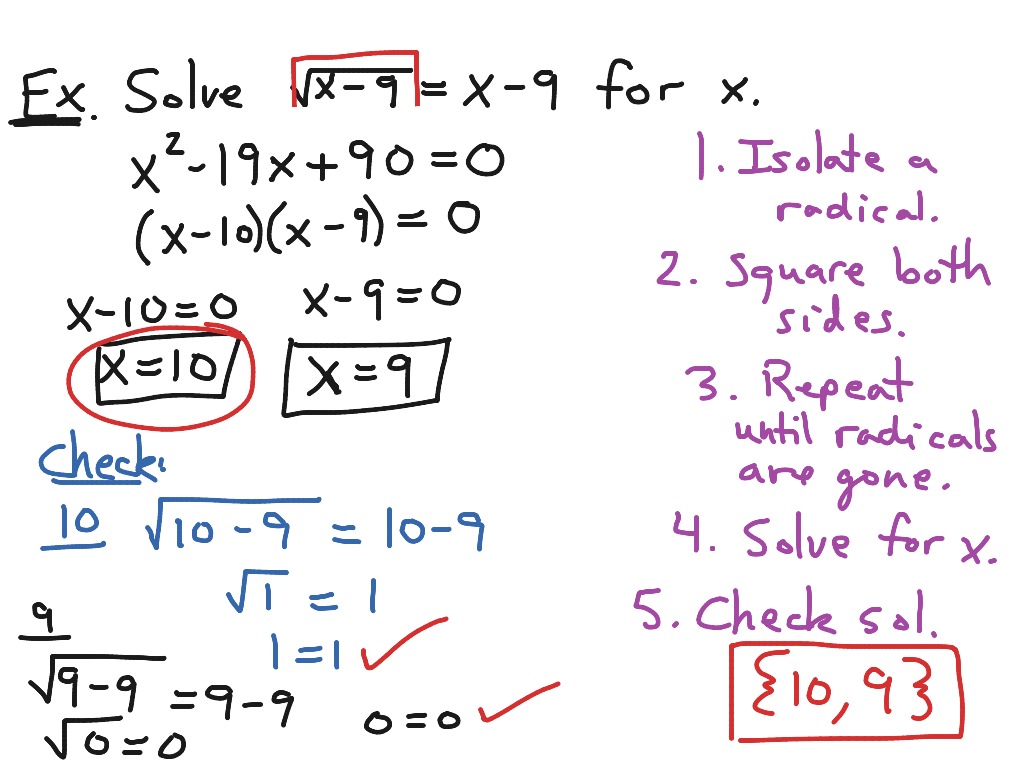 Ex. Solve √x-9 = x-9 for x.
x²-19x+90=0
(x-10)(x-9)=0
x-10=0 x-9=0
x=10 x=9
Check:
10 √10-9 = 10-9
√1 = 1
1=1 ✓
9
√9-9 = 9-9
√0=0 0=0 ✓
1. Isolate a
radical.
2. Square both
sides.
3. Repeat
until radicals
are gone.
4. Solve for x.
5. Check sol.
{10, 9}